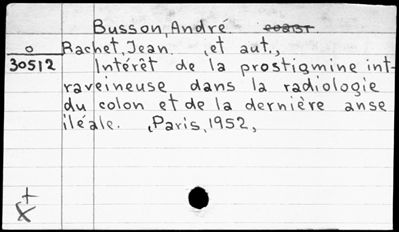 Busson, André.
o Rachet, Jean. , et aut.,
30512 Intérêt de la prostigmine int-
raveineuse dans la radiologie
du colon et de la dernière anse
iléale. , Paris, 1952,